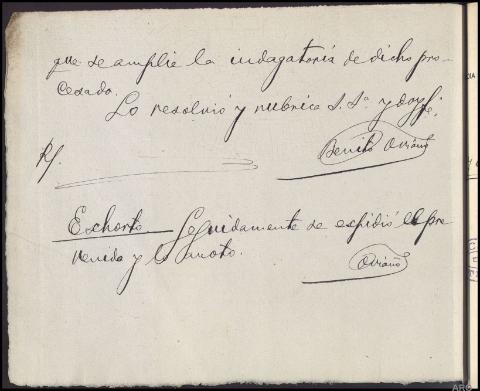 que se amplie la indagatoria de dicho pro-
cesado.
Lo resolvió y rubrica S.Sª. y doy fé.
Rf.
Benito
Exhorto Seguidamente se espidió el pre
venido y lo anoto.